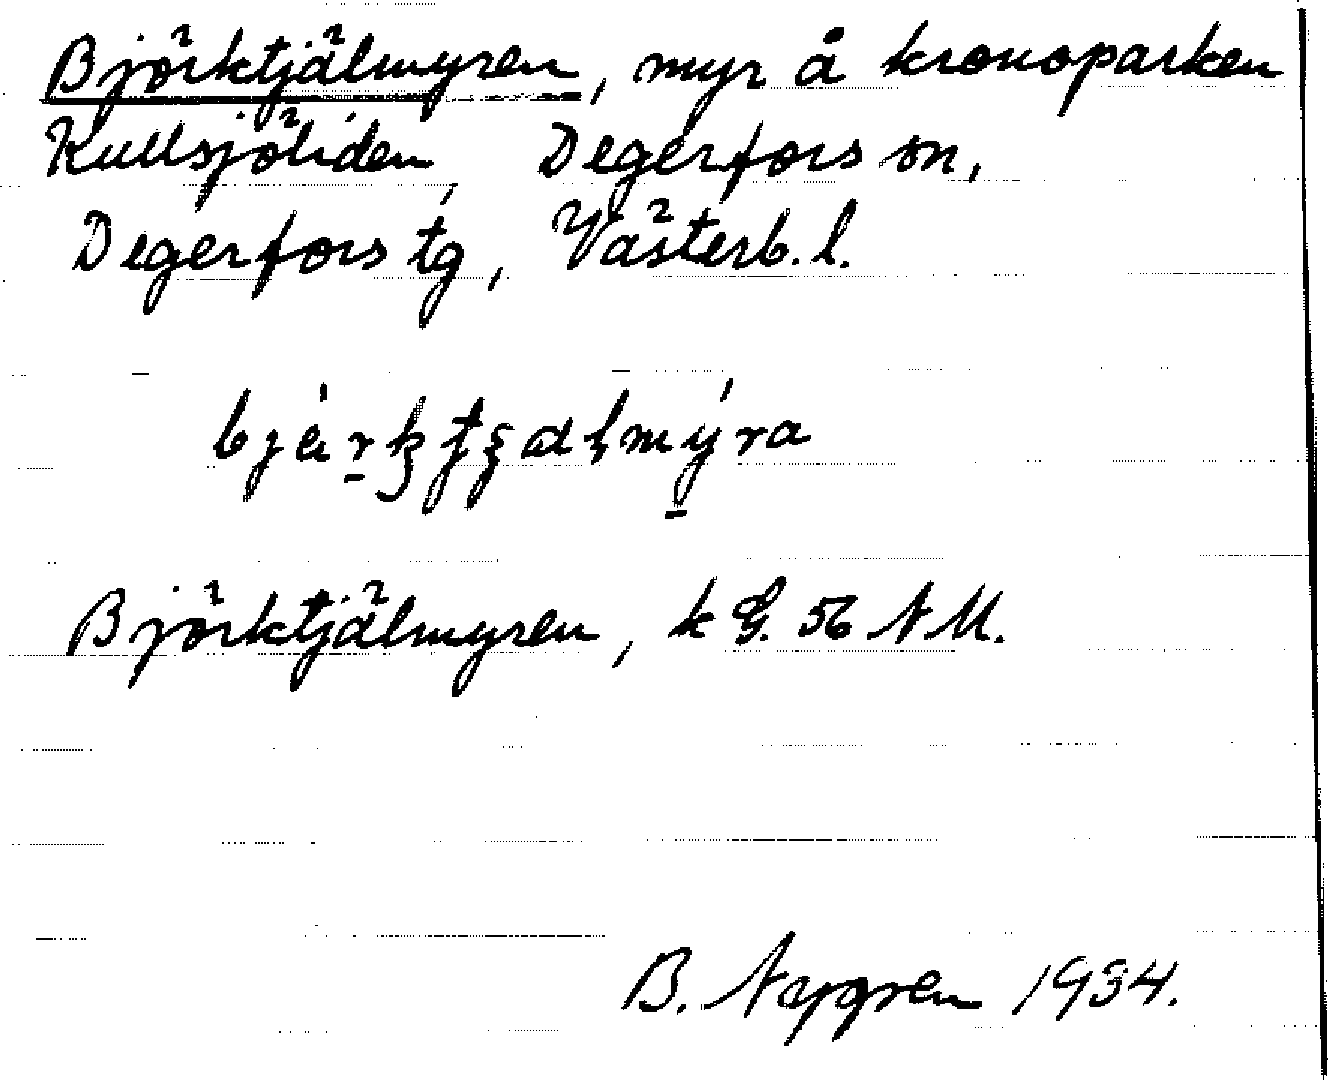 Björktjälmyren, myr å kronoparken
Kullsjöliden, Degerfors sn,
Degerfors tg, Västerb. l.
Björktjälmyren, k G. 56 N M.
B. Nygren 1934.